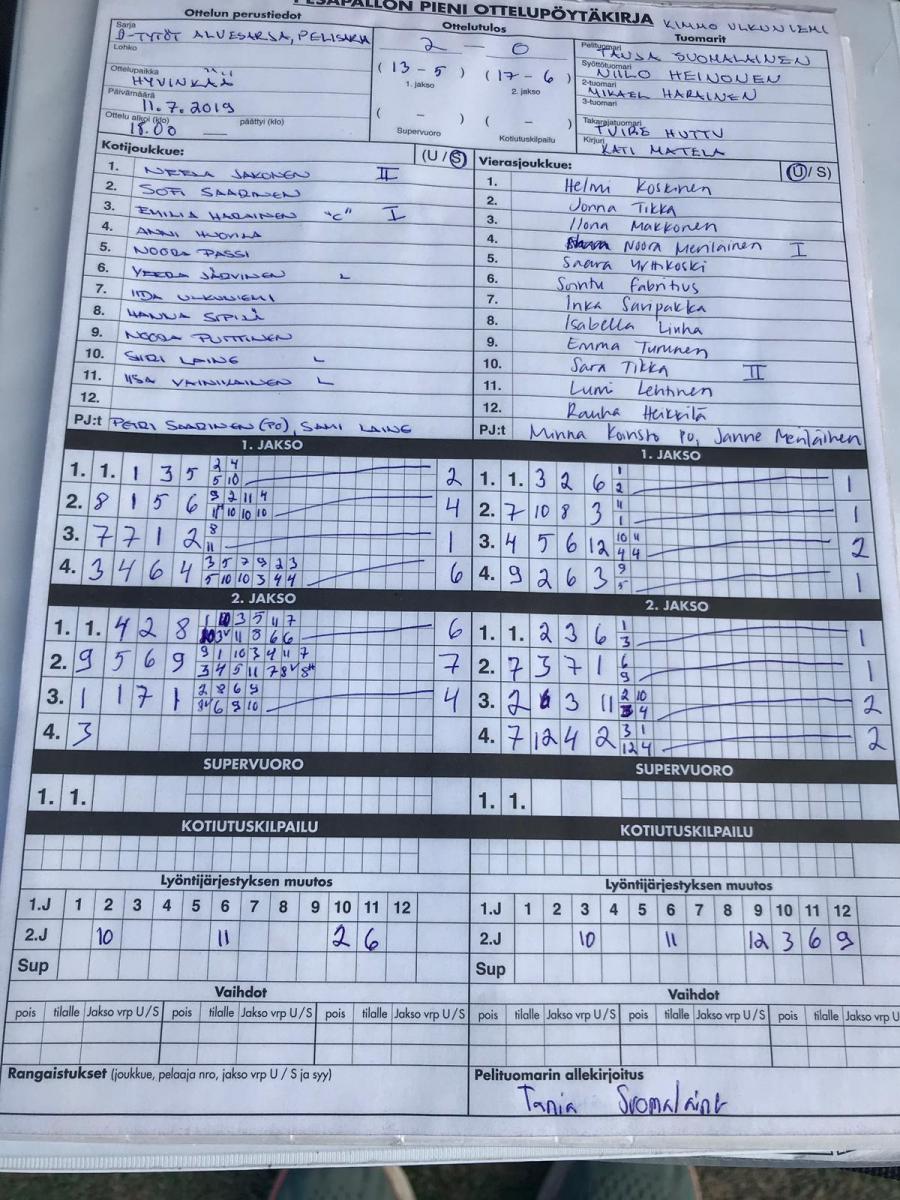 PESÄPALLON PIENI OTTELUPÖYTÄKIRJA KIMMO ULKUNIEMI
Ottelun perustiedot
Sarja
D-TYTÖT ALUESARJA, PELISARJA
Lohko
Ottelupaikka
HYVINKÄÄ
Päivämäärä
11.7.2019
Ottelu alkoi (klo) päättyi (klo)
18.00
Ottelutulos
2 – 0
(13 – 5) (17 – 6)
1. jakso 2. jakso
( – ) ( – )
Supervuoro Kotiutuskilpailu
Tuomarit
Pelituomari
TANJA SUOMALAINEN
Syöttötuomari
NIILO HEINONEN
2-tuomari
MIKAEL HARAINEN
3-tuomari
Takarajatuomari
TUIRE HUTTU
Kirjuri
KATI MATELA
Kotijoukkue: (U / S)
1. NEELA JAKONEN II
2. SOFI SAARINEN
3. EMILIA HARAINEN "C" I
4. ANNI HUOVILA
5. NOORA PASSI
6. VEERA JÄRVINEN L
7. IIDA ULKUNIEMI
8. HANNA SIPILÄ
9. NOORA PUTTINEN
10. SIIRI LAINE L
11. IISA VAINIKAINEN L
12.
PJ:t PETRI SAARINEN (PO), SAMI LAINE
Vierasjoukkue: (U / S)
1. Helmi Koskinen
2. Jonna Tikka
3. Ilona Makkonen
4. Noora Meriläinen I
5. Saara Myttikoski
6. Sonttu Fabritius
7. Inka Saripakka
8. Isabella Linha
9. Emma Turunen
10. Sara Tikka II
11. Lumi Lehtinen
12. Rauha Heikkilä
PJ:t Minna Koinsto po, Janne Meriläinen
1. JAKSO
1. 1. 1 3 5 2 4 2
5 10
2. 8 1 5 6 9 2 11 4 4
11" 10 10 10
3. 7 7 1 2 8 1
11
4. 3 4 6 4 3 5 7 9 2 3 6
5 10 10 3 4 4
1. JAKSO
1. 1. 3 2 6 1 1
2
2. 7 10 8 3 11 1
1
3. 4 5 6 12 10 11 2
4 4
4. 9 2 6 3 9 1
5
2. JAKSO
1. 1. 4 2 8 1 10 3 5 11 7 6
3v 11 8 6 6
2. 9 5 6 9 9 1 10 3 4 11 7 7
3 4 5 11 7 8v 8"
3. 1 1 7 1 2 8 6 9 4
3v 6 9 10
4. 3
2. JAKSO
1. 1. 2 3 6 1 1
3
2. 7 3 7 1 6 1
9
3. 2 6 3 11 2 10 2
3 4
4. 7 12 4 2 3 1 2
12 4
SUPERVUORO
1. 1.
SUPERVUORO
1. 1.
KOTIUTUSKILPAILU
KOTIUTUSKILPAILU
Lyöntijärjestyksen muutos
1.J 1 2 3 4 5 6 7 8 9 10 11 12
2.J 10 11 2 6
Sup
Lyöntijärjestyksen muutos
1.J 1 2 3 4 5 6 7 8 9 10 11 12
2.J 10 11 12 3 6 9
Sup
Vaihdot
pois tilalle Jakso vrp U / S pois tilalle Jakso vrp U / S pois tilalle Jakso vrp U / S
Vaihdot
pois tilalle Jakso vrp U / S pois tilalle Jakso vrp U / S pois tilalle Jakso vrp U
Rangaistukset (joukkue, pelaaja nro, jakso vrp U / S ja syy)
Pelituomarin allekirjoitus
Tanja Suomalaine